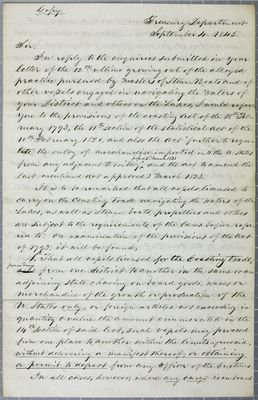 Copy.
Treasury Department
September 4. 1845.
Sir,
In reply to the enquiries submitted in your
letter of the 12th ultimo growing out of the alleged
practice pursued by Masters of Steam Boats and of
other vessels engaged in navigating the waters of
your District and others on the Lakes, I would refer
you to the provisions of the coasting Act of the 18th Feb-
ruary 1793, the section of the statistical act of the
10th February 1820, and also the act further to regu-
late the entry of merchandise imported into the U. States
from any adjacent territory, and the act to amend the
last mentioned act approved 2 March 1823.
It is to be remarked that all vessels licensed to
carry on the Coasting trade navigating the waters of the
Lakes, as well as Steam boats, propellers and others
are subject to the requirements of the laws before refer-
red to. On examination of the provisions of the Act
of 1793, it will be found,
1. That all vessels licensed for the Coasting trade,
from one district to another in the same or an
adjoining state having on board goods, wares or
merchandise of the growth or production of the
U. States only, or foreign articles not exceeding in
quantity or value the amount enumerated in the
14th section of said Act, such vessels may proceed
from one place to another within the limits aforesaid,
without delivering a manifest thereof, or obtaining
a permit to depart from any officer of the Customs.
In all cases, however, where any cargo is on board